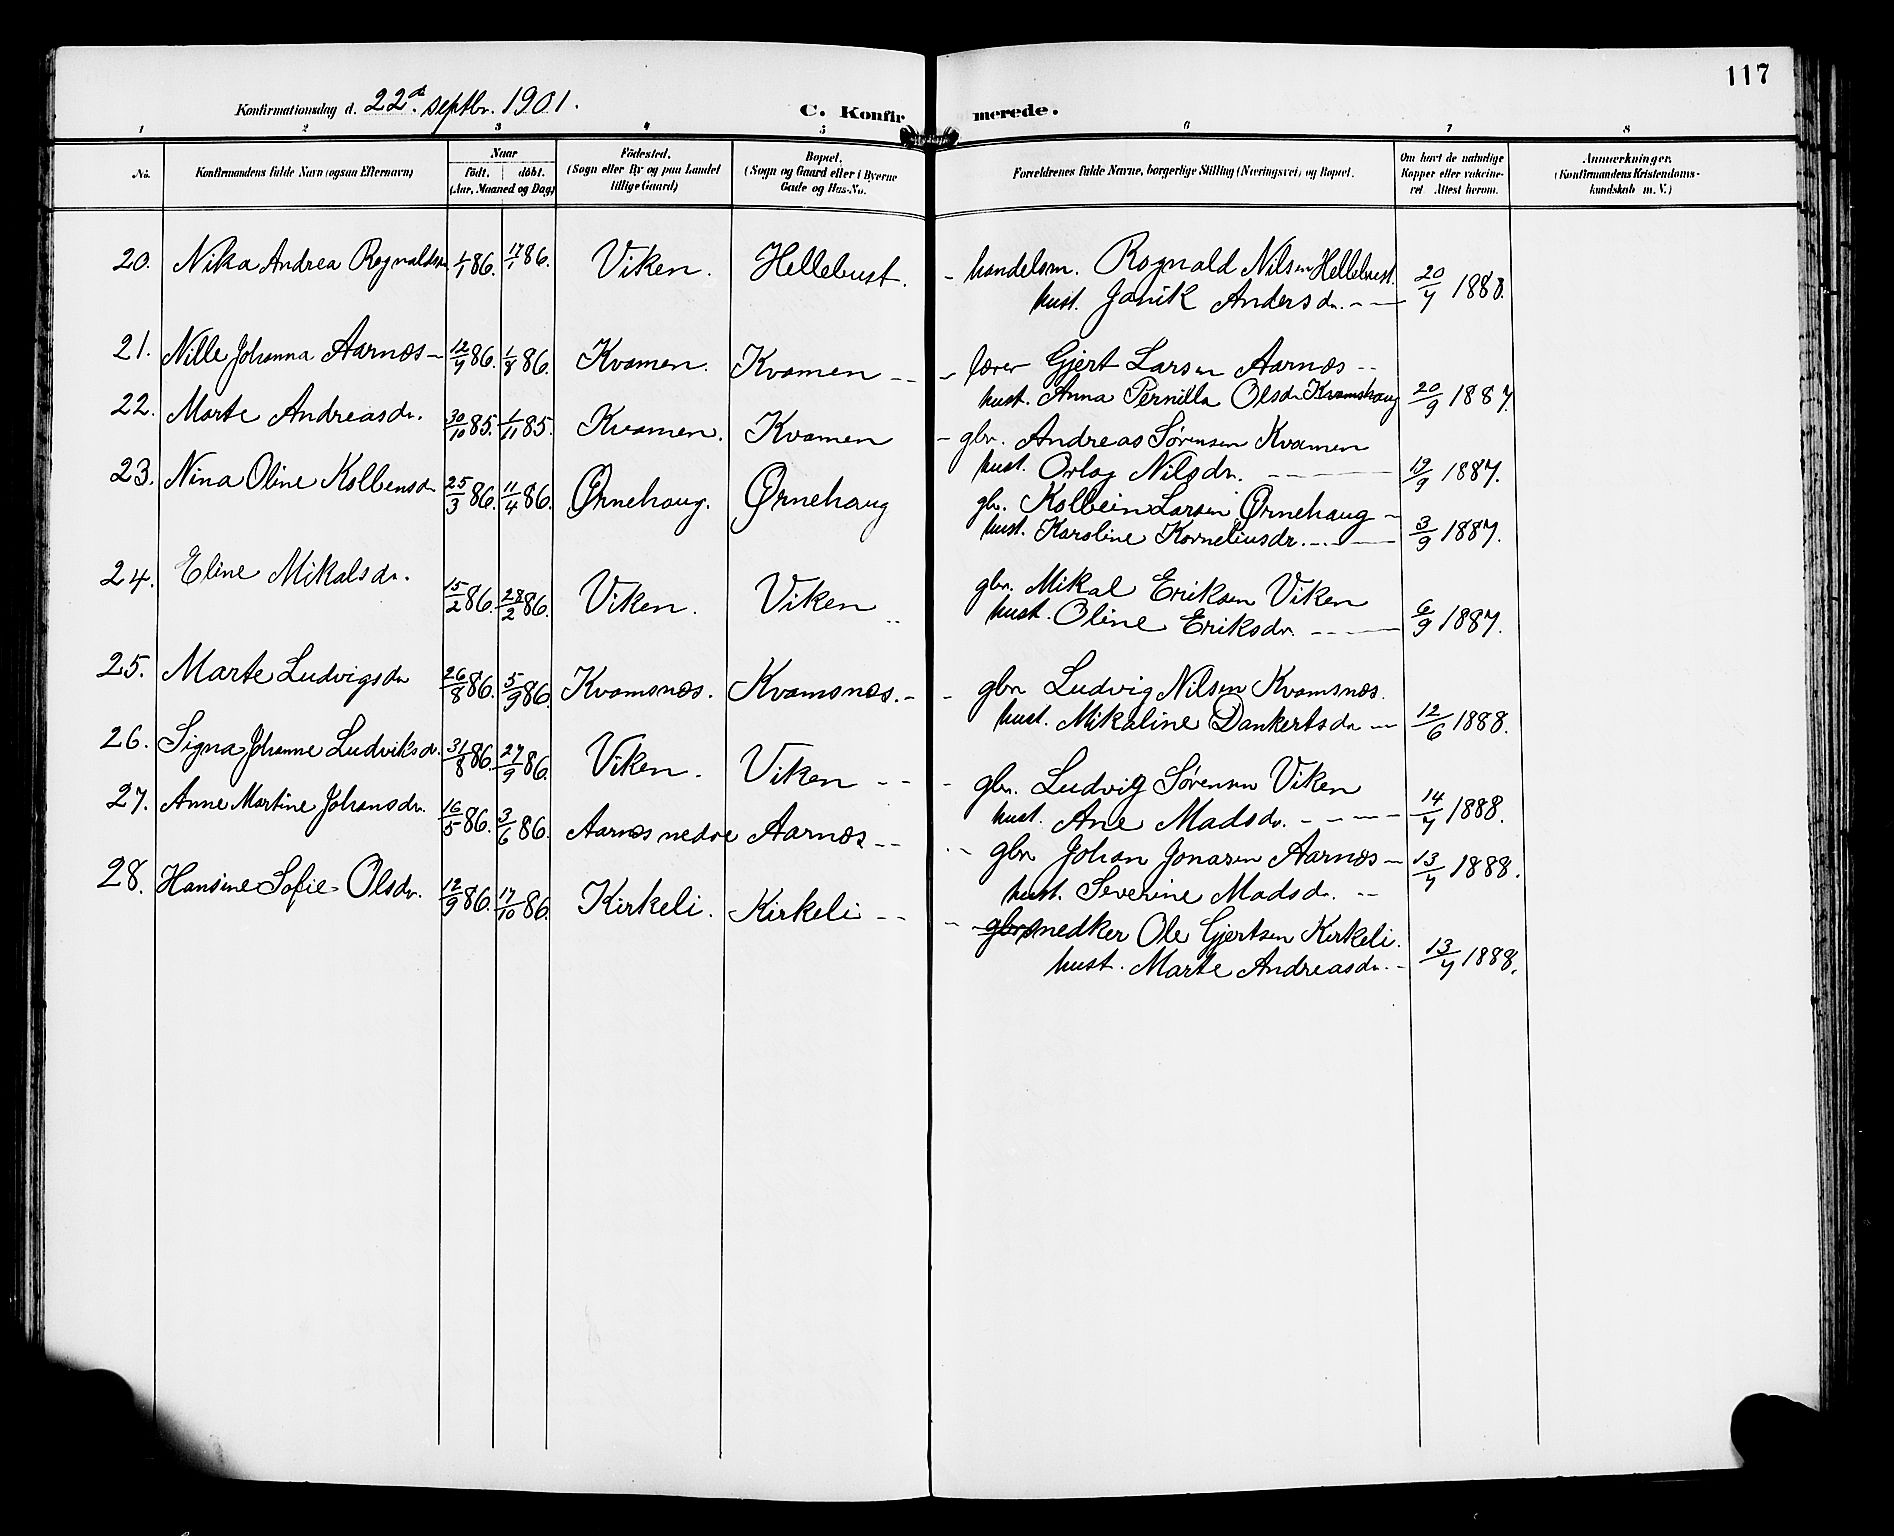 117
Konfirmationsdag d. 22de septbr. 1901.
C. Konfirmerede.
1 2 3 4 5 6 7 8
No.
Konfirmandens fulde Navn (ogsaa Efternavn)
Naar
Födt. döbt.
(Aar, Maaned og Dag)
Födested.
(Sogn eller By og paa Landet
tillige Gaard)
Bopæl.
(Sogn og Gaard eller i Byerne
Gade og Hus-No.
Forældrenes fulde Navne, borgerlige Stilling (Næringsvei) og Bopæl.
Om havt de naturlige
Kopper eller vakcine-
ret. Attest herom.
Anmærkninger.
(Konfirmandens Kristendoms-
kundskab m. V.)
20. Nika Andrea Rognaldsdr 1/1 86. 17/1 86. Viken. Hellebust. - handelsm. Rognald Nilsen Hellebust.
hust. Janik Andersdr. - - 20/7 1888.
21. Nille Johanna Aarnæs - 12/7 86. 1/8 86. Kvamen. Kvamen - - - lærer Gjert Larsen Aarnæs - -
hust. Anna Pernilla Olsdr. Kvamshaug 20/9 1887.
22. Marte Andreasdr. 30/10 85. 1/11 85. Kvamen. Kvamen - gbr. Andreas Sørensen Kvamen
hust. Orlog Nilsdr. - - - - 19/9 1887.
23. Nina Oline Kolbensdr 25/3 86. 11/4 86. Ørnehaug. Ørnehaug gbr. Kolbein Larsen Ørnehaug -
hust. Karoline Korneliusdr. - - - 3/9 1887.
24. Eline Mikalsdr. 15/2 86. 28/2 86. Viken. Viken - - gbr. Mikal Eriksen Viken
hust. Oline Eriksdr. - - - - 6/9 1887.
25. Marte Ludvigsdr 26/8 86. 5/9 86. Kvamsnæs. Kvamsnæs. - - gbr Ludvig Nilsen Kvamsnæs.
hust. Mikaline Dankertsdr - - 12/6 1888.
26. Signa Johanne Ludviksdr. 31/8 86. 27/9 86. Viken. Viken - - - gbr. Ludvig Sørensen Viken
hust. Ane Madsdr. - - - - 14/7 1888.
27. Anne Martine Johansdr. 16/5 86. 3/6 86. Aarnæs nedre Aarnæs - - - - gbr Johan Jonasen Aarnæs -
hust. Severine Madsdr. - - 13/7 1888.
28. Hansine Sofie Olsdr. 12/9 86. 17/10 86. Kirkeli. Kirkeli - - - gbr snedker Ole Gjertsen Kirkeli.
hust. Marte Andreasdr. - 13/7 1888.